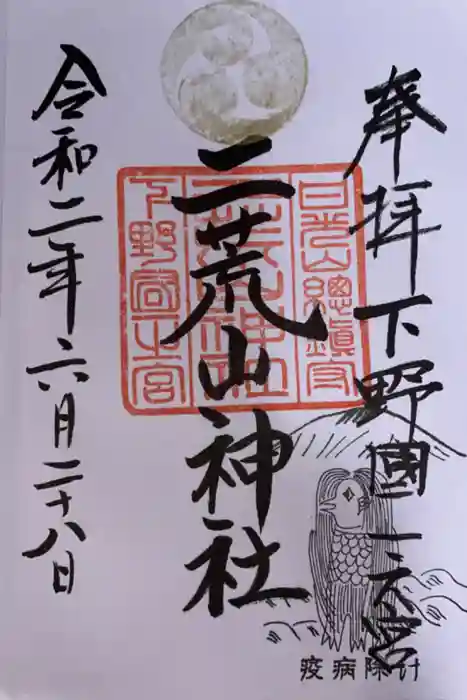 奉拝下野國一之宮
二荒山神社
令和二年六月二十八日
日光山總鎮守
二荒山神社
下野國一宮
疫病除け